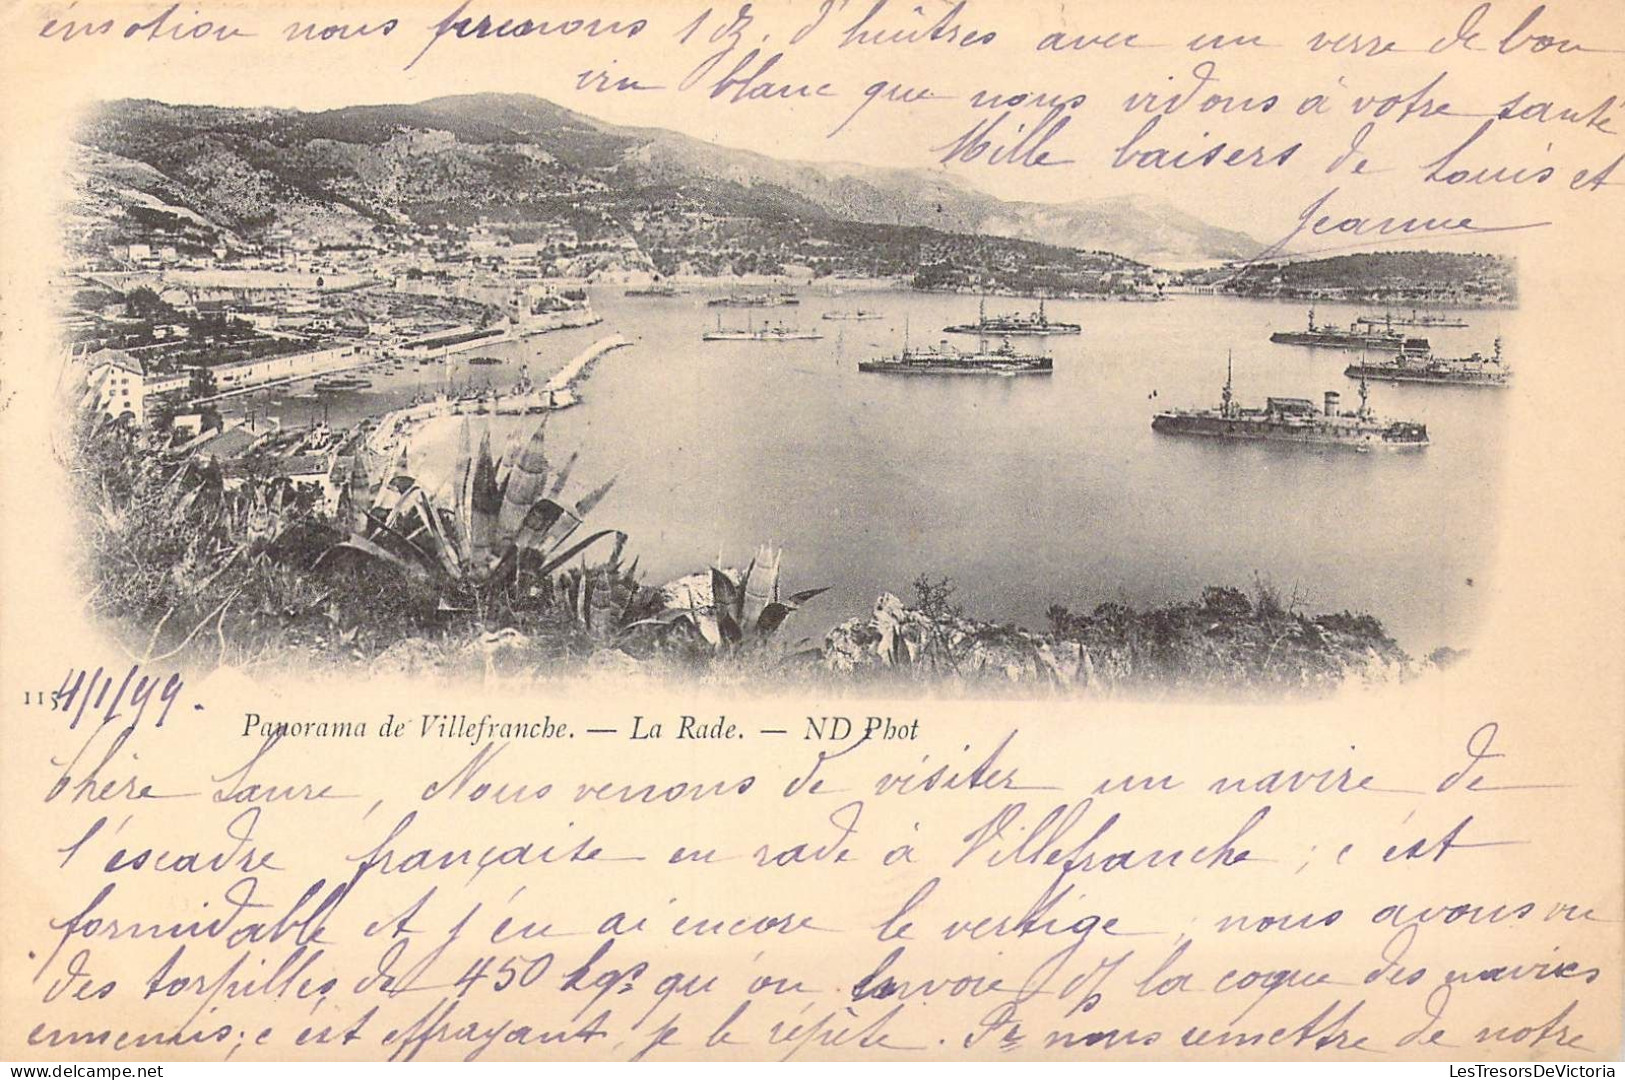 115 4/1/99.
Panorama de Villefranche. — La Rade. — ND Phot
Chère Laure, Nous venons de visiter un navire de
l'éscadre française en rade à Villefranche; c'est
formidable et j'en ai encore le vertige, nous avons vu
des torpilles de 450 kgs qu'on envoie ds la coque des navires
ennemis; c'est effrayant, je le répète. Pr nous remettre de notre
émotion nous prenons 1 dz. d'huîtres avec un verre de bon
vin blanc que nous vidons à votre santé
Mille baisers de Louis et
Jeanne
LesTresorsDeVictoria